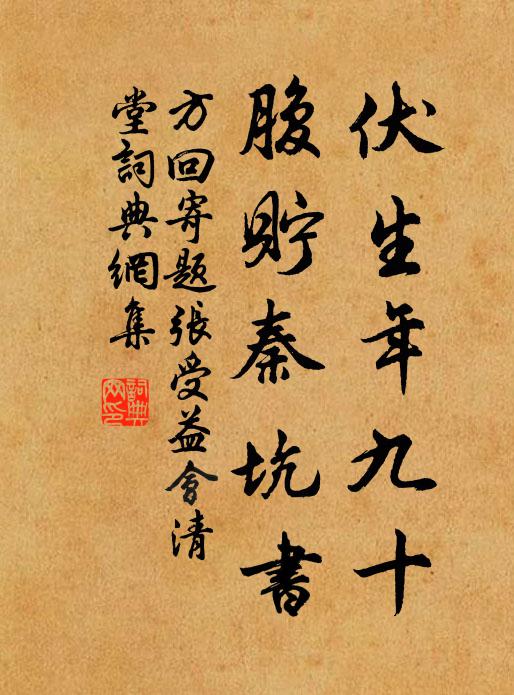 伏生年九十
腹貯秦坑書
方回寄題張受益會清
堂詞典網集
詞典網印